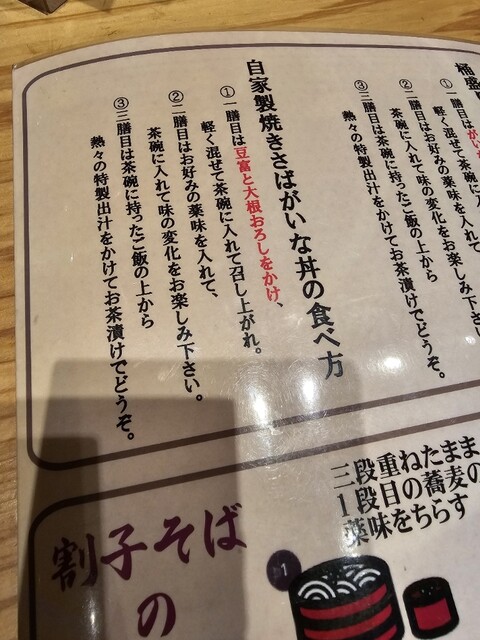 桶盛
①一膳目はがい
軽く混ぜて茶碗に入
②二膳目はお好みの薬味を入れて
茶碗に入れて味の変化をお楽しみ下さい
③三膳目は茶碗に持ったご飯の上から
熱々の特製出汁をかけてお茶漬けでどうぞ。
自家製焼きさばがいな丼の食べ方
①一膳目は豆富と大根おろしをかけ、
軽く混ぜて茶碗に入れて召し上がれ。
②二膳目はお好みの薬味を入れて、
茶碗に入れて味の変化をお楽しみ下さい。
③三膳目は茶碗に持ったご飯の上から
熱々の特製出汁をかけてお茶漬けでどうぞ。
割子そば
の
三段重ねたまま
1段目の蕎麦の
薬味をちらす
1